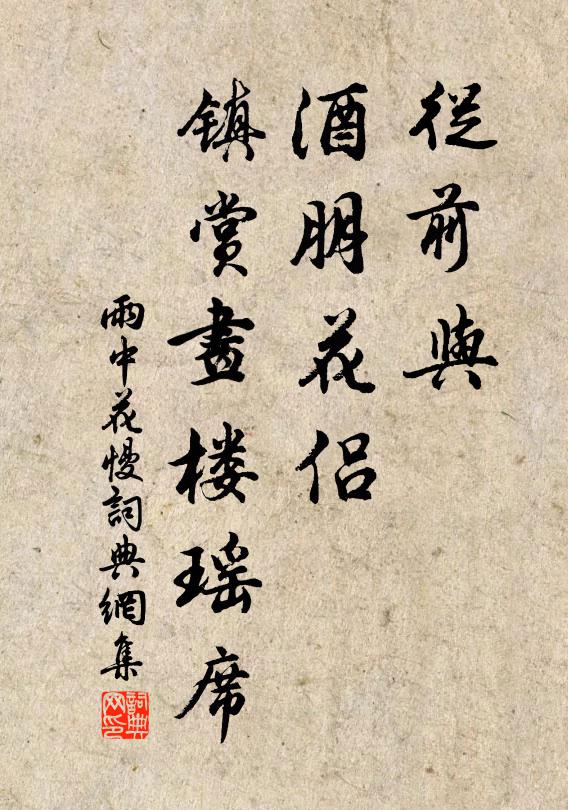 從前與
酒朋花侶
镇賞畫楼瑶席
雨中花慢詞典網集
詞典网印